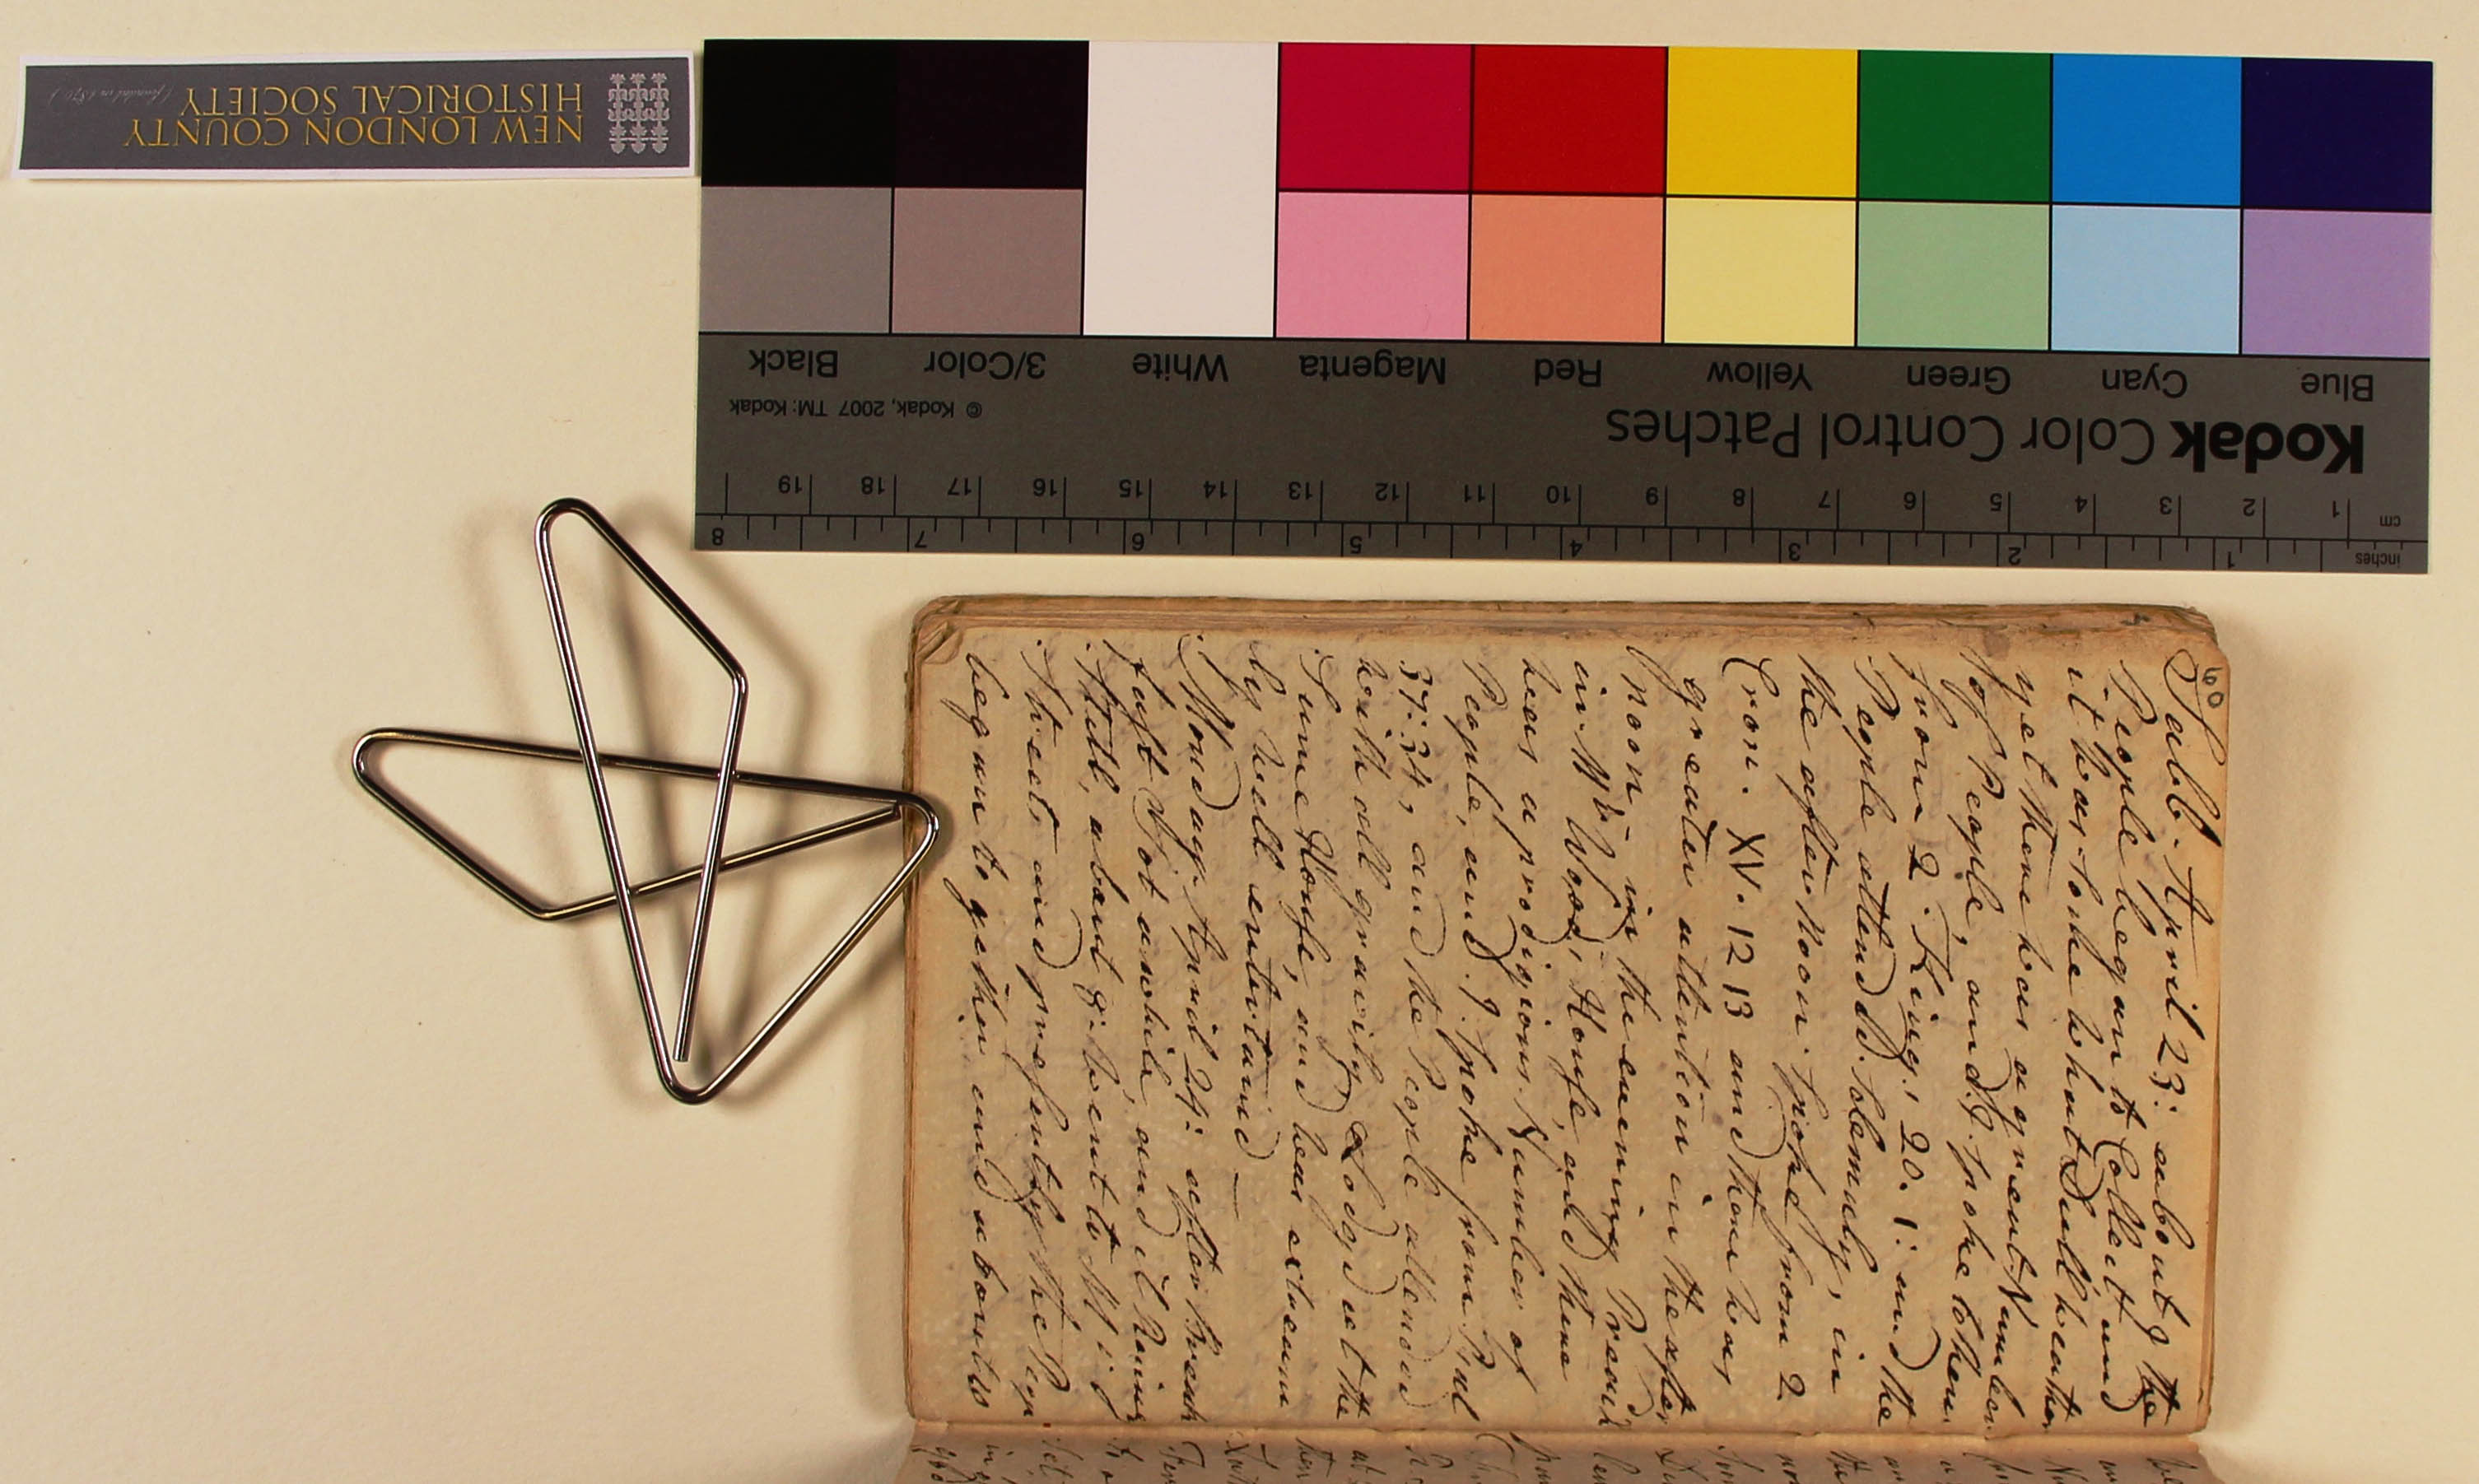 NEW LONDON COUNTY
HISTORICAL SOCIETY
(founded in 1870)
Black
3/Color
White
Magenta
Red
Yellow
Green
Cyan
Blue
© Kodak, 2007 TM: Kodak
Kodak Color Control Patches
cm 1 2 3 4 5 6 7 8 9 10 11 12 13 14 15 16 17 18 19
inches 1 2 3 4 5 6 7 8
60
Sabb. April 23: about 9 the
People began to Collect and
it was some what Dull weather
yet there was a great Number
of People, and I spoke to them
from 2. Kings 20. 1: and the
People attend.d Solemnly, in
the after noon Spoke from 2
Cron. XV. 12 13 and there was
greater attention in the after
noon, in the evening Preach
in Mr Woods House, and there
was a prodigious Number of
People, and I spoke from Psal
37: 34, and the People attended
with all gravity Lodgd at the
Same House, and was extream
ly well entertaind —
Monday April 24: after Break
fast Sot awhile, and it Raining
Still, about 8: went to
Street, and presently the Peopl
began to gether and about 10